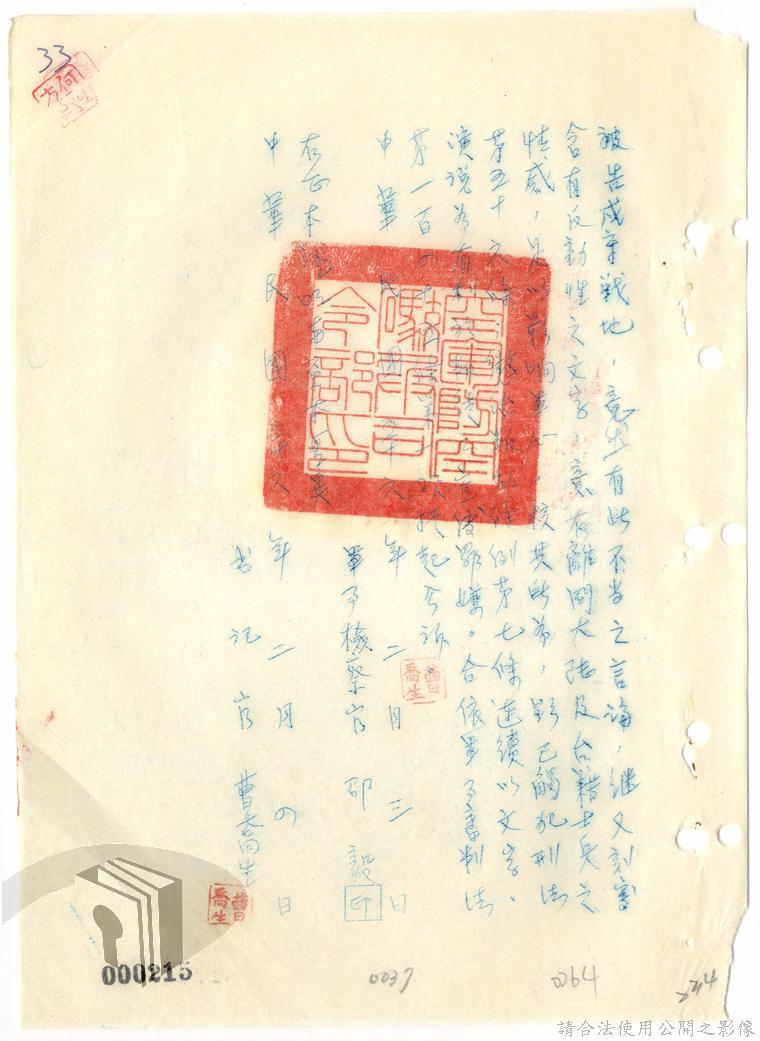 33
被告戍守戰地，竟生有此不當之言論，繼又刻寫
含有反動性之文字，意在離間大陸及台籍士兵之
情感，足以影响軍心，核其所為，顯已觸犯刑法
第五十六條、懲治叛乱條例第七條連續以文字、
演說為有利於叛徒之宣傳罪嫌。合依軍事審判法
第一百四十五條第一項提起公訴
中華民國五十六年二月三日
軍事檢察官 邵毅 印
右正本證明與原本無異
中華民國五十六年二月四日
書記官 曹喬生
曹喬生
曹喬生
000215
0037
0264
請合法使用公開之影像